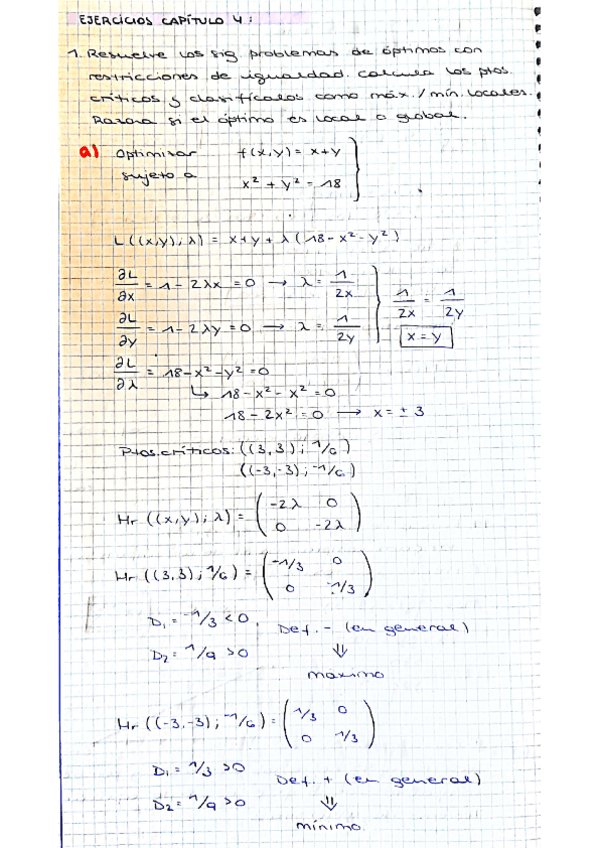 EJERCICIOS CAPÍTULO 4:
1. Resuelve los sig problemas de óptimos con
restricciones de igualdad. Calcula los ptos.
críticos y clasifícalos como máx./mín. locales.
Razona si el óptimo es local o global.
a) Optimizar f(x,y) = x+y
sujeto a x² + y² = 18
L((x,y),λ) = x+y + λ(18-x²-y²)
∂L/∂x = 1 - 2λx = 0 → λ = 1/2x
1/2x = 1/2y
∂L/∂y = 1 - 2λy = 0 → λ = 1/2y
x = y
∂L/∂λ = 18-x²-y² = 0
↳ 18-x²-x² = 0
18-2x² = 0 → x = ± 3
Ptos. críticos: ((3,3); 1/6)
((-3,-3); -1/6)
Hr ((x,y); λ) = (-2λ 0
0 -2λ)
Hr ((3,3); 1/6) = (-1/3 0
0 -1/3)
D₁ = -1/3 < 0. Def. - (en general)
D₂ = 1/9 > 0 ⇓
máximo
Hr ((-3,-3); -1/6) = (1/3 0
0 1/3)
D₁ = 1/3 > 0 Def. + (en general)
D₂ = 1/9 > 0 ⇓
mínimo.